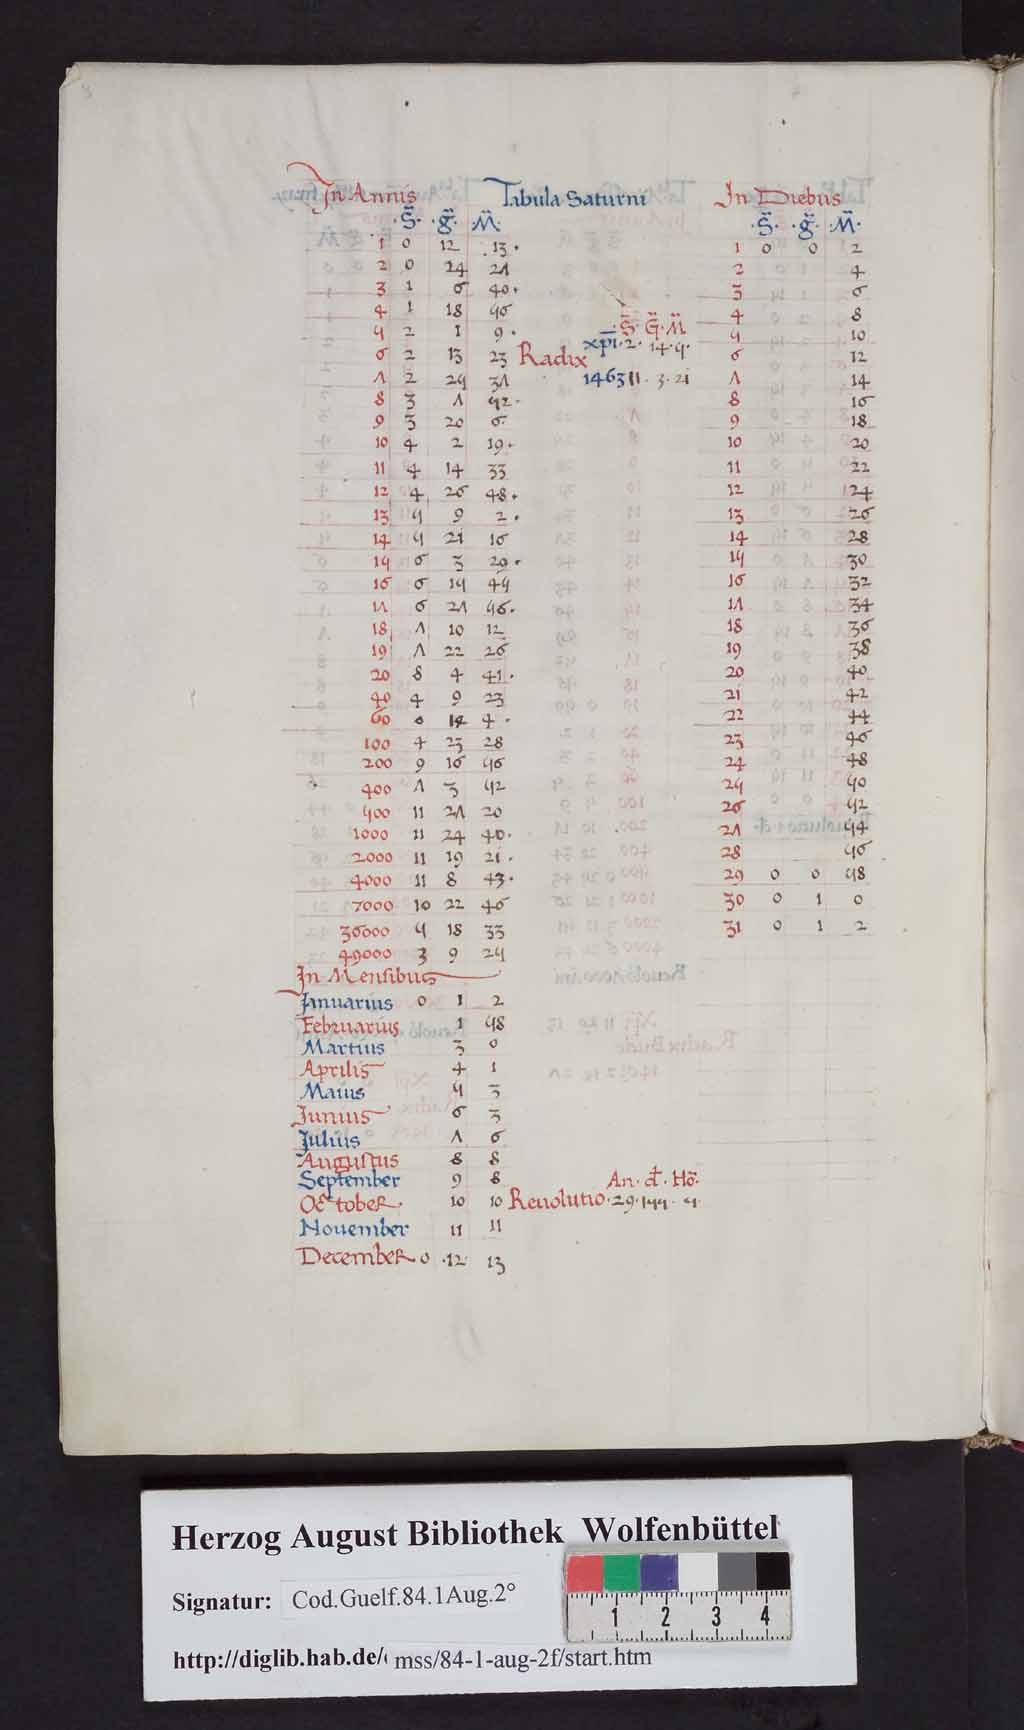 In Annis
S̃. g̃. M̃.
1 0 12 13
2 0 24 27
3 1 6 40
4 1 18 56
5 2 1 9
6 2 13 23
7 2 25 37
8 3 7 52
9 3 20 6
10 4 2 19
11 4 14 33
12 4 26 48
13 5 9 2
14 5 21 16
15 6 3 29
16 6 15 45
17 6 27 56
18 7 10 12
19 7 22 26
20 8 4 41
40 4 9 23
60 0 14 4
100 4 23 28
200 9 16 56
400 7 3 52
500 11 27 20
1000 11 24 40
2000 11 19 21
4000 11 8 43
7000 10 22 46
36000 5 18 33
49000 3 9 25
In Mensibus
Januarius 0 1 2
Februarius 1 58
Martius 3 0
Aprilis 4 1
Maius 5 3
Junius 6 3
Julius 7 6
Augustus 8 8
September 9 8
October 10 10
Nouember 11 11
December 0 12 13
Tabula Saturni
S̃. G̃. M̃
xp̄i. 2. 14. 5.
Radix
1463 11. 3. 21
An. d. Ho.
Reuolutio. 29. 155. 5
In Diebus
S̃. g̃. M̃.
1 0 0 2
2 4
3 6
4 8
5 10
6 12
7 14
8 16
9 18
10 20
11 22
12 24
13 26
14 28
15 30
16 32
17 34
18 36
19 38
20 40
21 42
22 44
23 46
24 48
25 50
26 52
27 54
28 56
29 0 0 58
30 0 1 0
31 0 1 2
Herzog August Bibliothek Wolfenbüttel
Signatur: Cod.Guelf.84.1Aug.2°
http://diglib.hab.de/ mss/84-1-aug-2f/start.htm
1 2 3 4